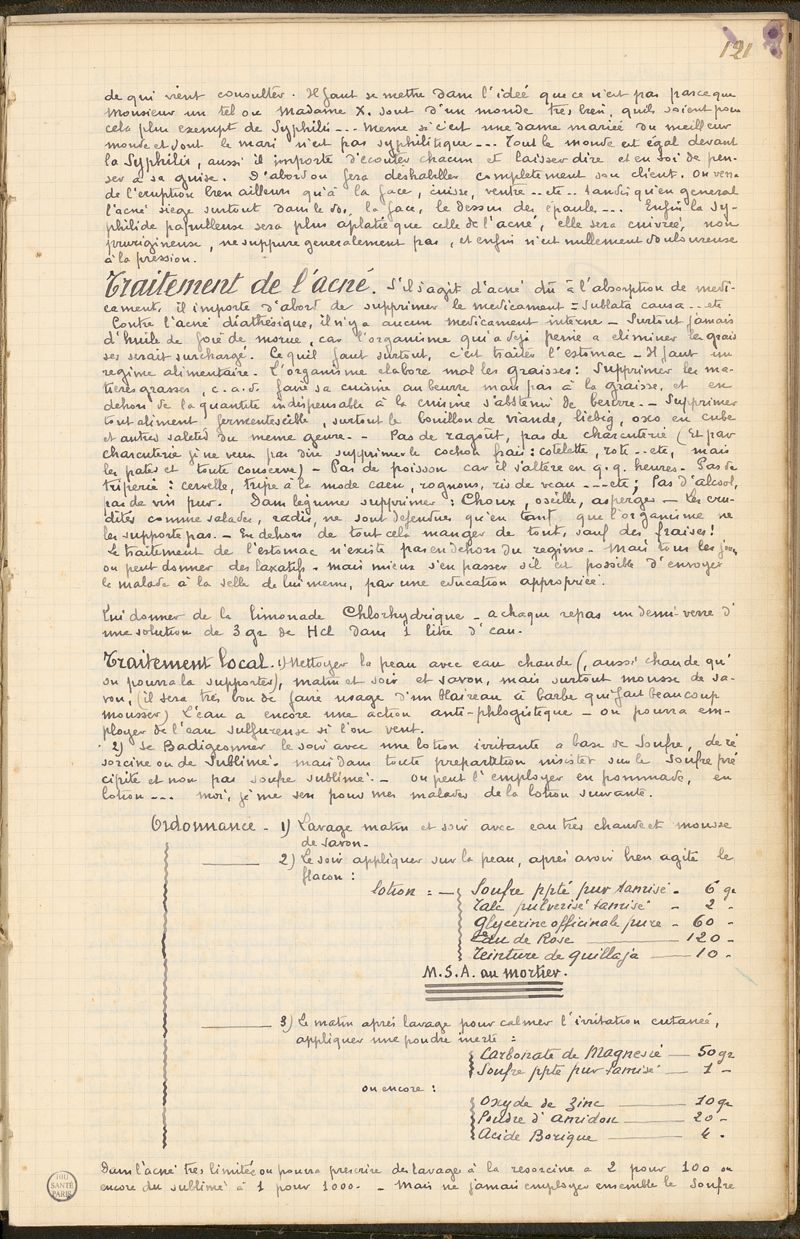 121
de qui vient consulter. Il faut se mettre dans l'idée que ce n'est pas parceque
Monsieur un tel ou Madame X. sont d'un monde très bien, qu'ils soient pour
cela plus exempt de Syphilis --- meme si c'est une dame mariée du meilleur
monde et dont le mari n'est pas syphilitique --- Tout le monde est égal devant
la Syphilis, aussi il importe d'écouter chacun et laisser dire et en soi de pen-
ser à sa guise. D'abord on fera deshabiller completement son client. On verra
de l'eruption bien ailleurs qu'à la face, cuisse, ventre -- etc -- tandis qu'en general
l'acné siège surtout dans le dos, la face, le dessus des épaules --- Enfin la Sy-
philide papulleuse sera plus aplatie que celle de l'acné, elle sera cuivreé, non
prurigineuse, ne suppure generalement pas, et enfin n'est nullement douloureuse
à la pression.
Traitement de l'acné. S'il s'agit d'acné dû à l'absorption de medi-
cament, il importe d'abord de supprimer le medicament = Sublata causa -- etc
Contre l'acné diathésique, il n'y a aucun medicament interne - Surtout jamais
d'huile de foie de morue, car l'organisme qui a deja peine a eliminer les grais
ses serait surchargé. Ce qu'il faut surtout, c'est traiter l'estomac - Il faut un
regime alimentaire. L'organisme elabore mal les graisses: Supprimer les ma-
tières grasses, c.a.d. faire sa cuisine au beurre mais pas à la graisse, et en
dehors de la quantité indispensable à la cuisine s'abstenir de beurre. - Supprimer
tout aliment fermentescible, surtout le bouillon de viande, liebig, oxo en cube
et autres saletés du meme genre. - Pas de ragoût, pas de charcuterie (Et par
charcuterie je ne veux pas dire supprimer le cochon frais: cotelette, roti -- etc, mais
les patés et toute conserve) - Pas de poisson car il s'altère en q.q. heures. Pas de
triperie: cervelle, tripe à la mode caen, rognons, ris de veau ---etc; Pas d'alcool,
pas de vin pur. Dans legume supprimer: Choux, oseille, asperges - Les cru-
dités comme salades, radis, ne sont defendues qu'en tant que l'organisme ne
les supporte pas. - En dehors de tout cela manger de tout, sauf des fraises!
Le traitement de l'estomac n'existe pas en dehors du regime. Mais tous les jours
on peut donner des laxatifs. mais mieux s'en passer s'il est possible d'envoyer
le malade à la selle de lui meme, par une education appropriée.
Lui donner de la limonade Chlorhydrique - a chaque repas un demi-verre d'
une solution de 3 gr de Hcl dans 1 litre d'eau.
Traitement local. 1) Nettoyer la peau avec eau chaude (, aussi chaude qu'
on pourra la supporter), matin et soir et savon, mais surtout mousse de sa-
von, (il sera très bon de faire usage d'un blaireau à barbe qui fait beaucoup
mousser) L'eau a encore une action anti-phlogistique - on pourra em-
ployer de l'eau sulfureuse si l'on veut.
2) Se Badigeonner le soir avec une lotion irritante a base de Soufre, de ré
sorcine ou de Sublimé. mais dans toute preparation insister sur le Soufre pré
cipité et non pas soufre sublimé. - On peut l'employer en pommade, en
lotion --- moi, je me sers pour mes malades de la lotion suivante.
Ordonnance - 1) Lavage matin et soir avec eau très chaude et mousse
de savon -
2) Le soir appliquer sur la peau, après avoir bien agité le
flacon:
lotion = - Soufre ppté pur tamisé - 6 gr
Talc pulverisé tamisé - 2 -
Glycerine officinale pure - 60 -
Eau de Rose - 120 -
Teinture de quillaja - 10 -
M.S.A. au mortier.
3) Le matin après lavage pour calmer l'irritation cutaneé,
appliquer une poudre inerte:
Carbonate de Magnesie - 50 gr
Soufre ppté pur tamisé - 1 -
ou encore:
Oxyde de Zinc - 10 gr
Poudre d'amidon - 20 -
Acide Borique - 4 -
Dans l'acné très limitée on pourra prescrire des lavages à la resorcine a 2 pour 100 ou
encore du sublimé à 1 pour 1000. - Mais ne jamais employer ensemble le Soufre
BIU
SANTÉ
PARIS